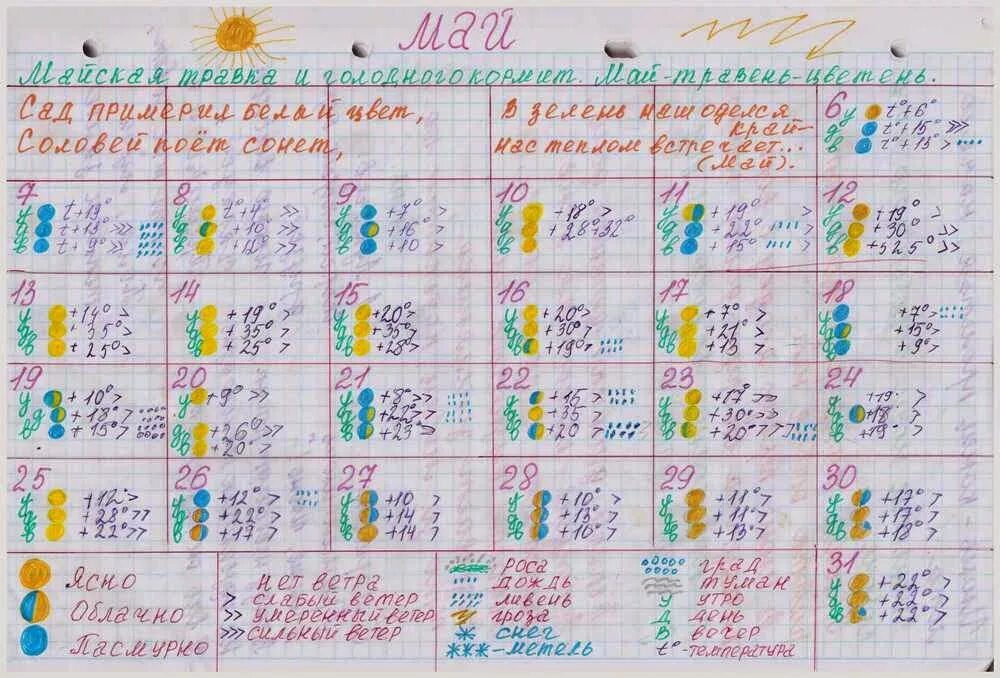 МАЙ
Майская травка и голодного кормит. Май-травень-цветень.
Сад примерил белый цвет,
Соловей поёт сонет,
В зелень наш оделся край-
нас теплом встречает...
(Май).
6
у t°+6°
д t°+15° >>>
в t°+13 >
7
у t+19°
д t+13° >>>
в t+9° >>
8
у t°+4° >>
д +10 >>
в +12° >>
9
у +7° >
д +16° >
в +10 >
10
у +18° >
д +28+32°
в
11
у +19° >
д +22° >
в +15° >
12
у +19° >
д +30° >>
в +525° >>
13
у +14° >
д +35° >
в +25° >
14
у +19° >
д +35° >
в +25° >
15
у +20° >
д +35° >
в +28° >
16
у +20° >
д +30° >
в +19° >
17
у +7° >
д +21° >
в +13 >
18
у +7° >
д +15° >
в +9° >
19
у +10° >
д +18° >
в +15° >
20
у +9° >>
д +26° >>
в +20° >
21
у +8° >>
д +22° >
в +23° >
22
у +15 >
д +35 >
в +20 >
23
у +17° >>
д +30° >>
в +20° >>>
24
у +19°
д +18°
в +19° >
25
у +12° >
д +28° >>
в +22° >>
26
у +12° >
д +22° >
в +17 >
27
у +10 >
д +14 >
в +14 >
28
у +10° >
д +13° >
в +10° >
29
у +11° >
д +11° >
в +13° >
30
у +17° >
д +17° >
в +18° >
31
у +22° >
д +22° >
в +22° >
Ясно
Облачно
Пасмурно
нет ветра
> слабый ветер
>> умеренный ветер
>>> сильный ветер
роса
дождь
ливень
гроза
снег
-метель
град
туман
У утро
Д день
В вечер
t°-температура